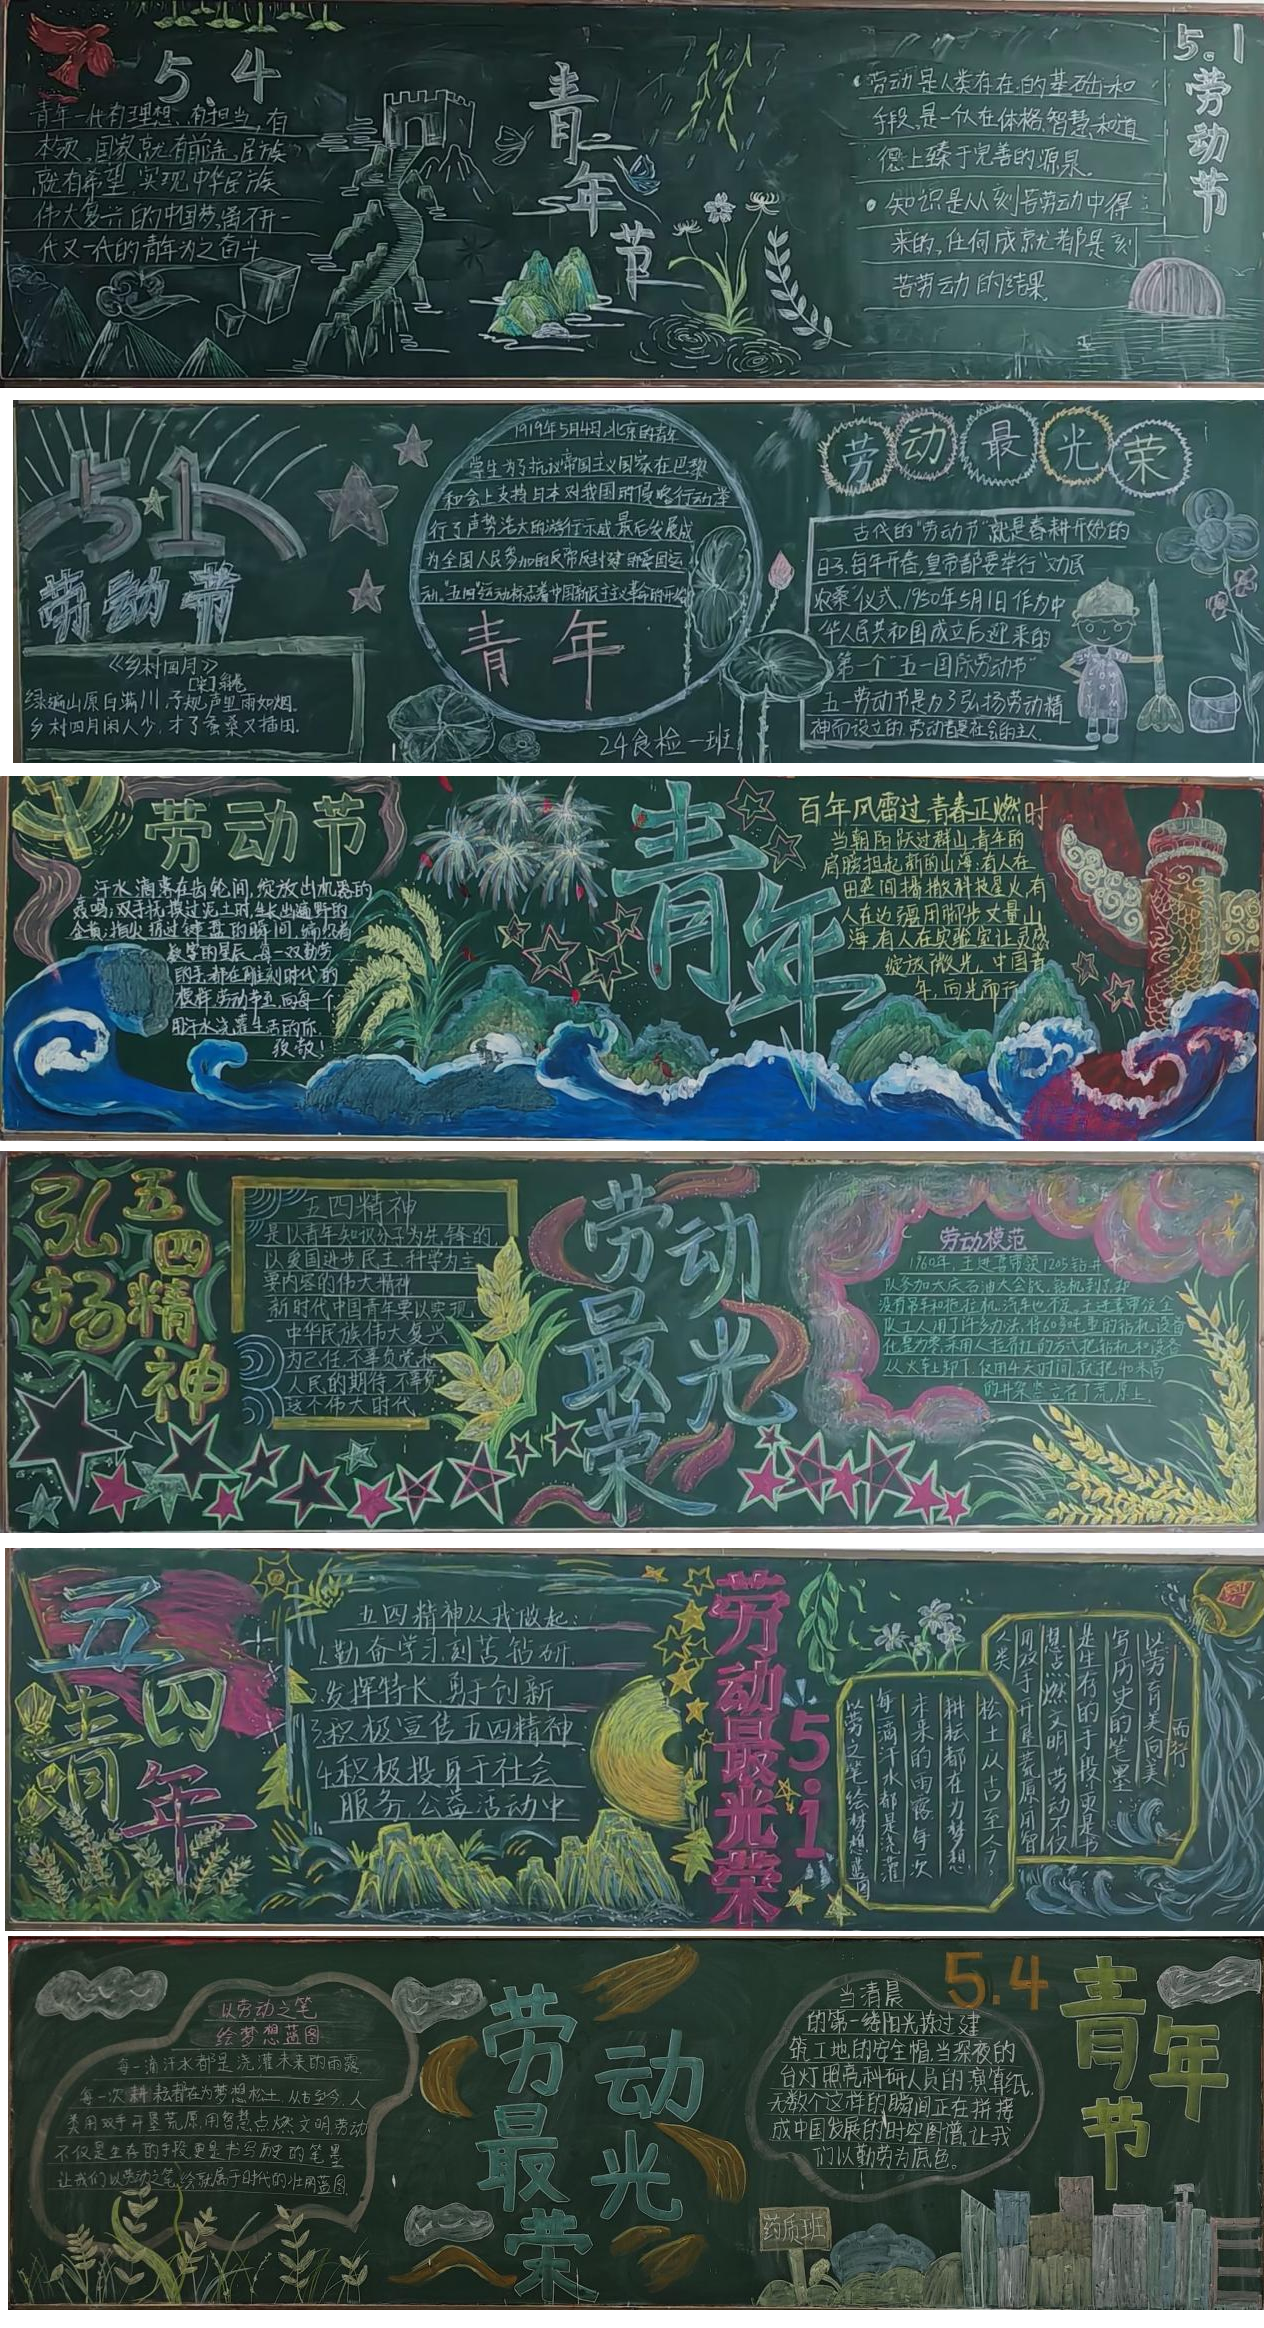 5.4
青年一代有理想、有担当,有
本领,国家就有前途,民族
就有希望,实现中华民族
伟大复兴的中国梦,需不开一
代又一代的青年为之奋斗
青年节
劳动是人类存在的基础和
手段,是一个人在体格,智慧,和道
德上臻于完善的源泉。
知识是从刻苦劳动中得
来的,任何成就都是刻
苦劳动的结果
5.1
劳动节
51
劳动节
《乡村四月》
[宋]翁卷
绿遍山原白满川,子规声里雨如烟。
乡村四月闲人少,才了蚕桑又插田。
1919年5月4日,北京的青年
学生为了抗议帝国主义国家在巴黎
和会上支持日本对我国的侵略行动举
行了声势浩大的游行示威,最后发展成
为全国人民参加的反帝反封建的爱国运
动,"五四"运动标志着中国新民主主义革命的开始
青年
24食检一班
劳动最光荣
古代的"劳动节"就是春耕开始的
日子,每年开春,皇帝都要举行"劝民
农桑"仪式,1950年5月1日作为中
华人民共和国成立后迎来的
第一个"五一国际劳动节"
五一劳动节是为了弘扬劳动精
神而设立的,劳动者是社会的主人.
劳动节
汗水滴落在齿轮间,绽放出机器的
轰鸣;双手抚摸过泥土时,生长出遍野的
金黄;指尖掠过键盘的瞬间,编织着
数字的星辰,每一双勤劳
的手,都在雕刻时代的
模样,劳动节至,向每一个
用汗水浇灌生活的你,
致敬!
青年
百年风雷过,青春正燃时
当朝阳跃过群山,青年的
肩膀担起新的山海,有人在
田垄间播撒科技星火,有
人在边疆用脚步丈量山
海,有人在实验室让灵感
绽放微光,中国青
年,向光而行
弘扬
五四精神
五四精神
是以青年知识分子为先锋的,
以爱国进步民主,科学为主
要内容的伟大精神
新时代中国青年要以实现
中华民族伟大复兴
为己任,不辜负党和
人民的期待,不辜负
这个伟大时代
劳动最光荣
劳动模范
1960年,王进喜带领1205钻井
队参加大庆石油大会战,钻机到了,却
没有吊车和拖拉机,汽车也不足,王进喜带领全
队工人用了许多办法,将60多吨重的钻机,设备
化整为零,采用人拉肩扛的方式把钻机和设备
从火车上卸下,仅用4天时间,就把40米高
的井架竖立在了荒原上
五四青年
五四精神从我做起:
1.勤奋学习,刻苦钻研,
2.发挥特长,勇于创新
3.积极宣传五四精神
4.积极投身于社会
服务,公益活动中
劳动最光荣
5.1
以劳之笔绘梦想蓝图
每一滴汗水都是浇灌
未来的雨露,每一次
耕耘都在为梦想
松土从古至今,
人类
用双手开垦荒原,用智
慧点燃文明,劳动不仅
是生存的手段更是书
写历史的笔墨
以劳育美向美
而行
以劳动之笔
绘梦想蓝图
每一滴汗水都是浇灌未来的雨露,
每一次耕耘都在为梦想松土,从古至今,人
类用双手开垦荒原,用智慧点燃文明,劳动
不仅是生存的手段更是书写历史的笔墨
让我们以劳动之笔,绘就属于时代的壮丽蓝图
劳动最光荣
当清晨
的第一缕阳光拂过建
筑工地的安全帽,当深夜的
台灯照亮科研人员的演算纸,
无数个这样的瞬间正在拼接
成中国发展的时空图谱,让我
们以勤劳为底色。
药质班
5.4
青年节